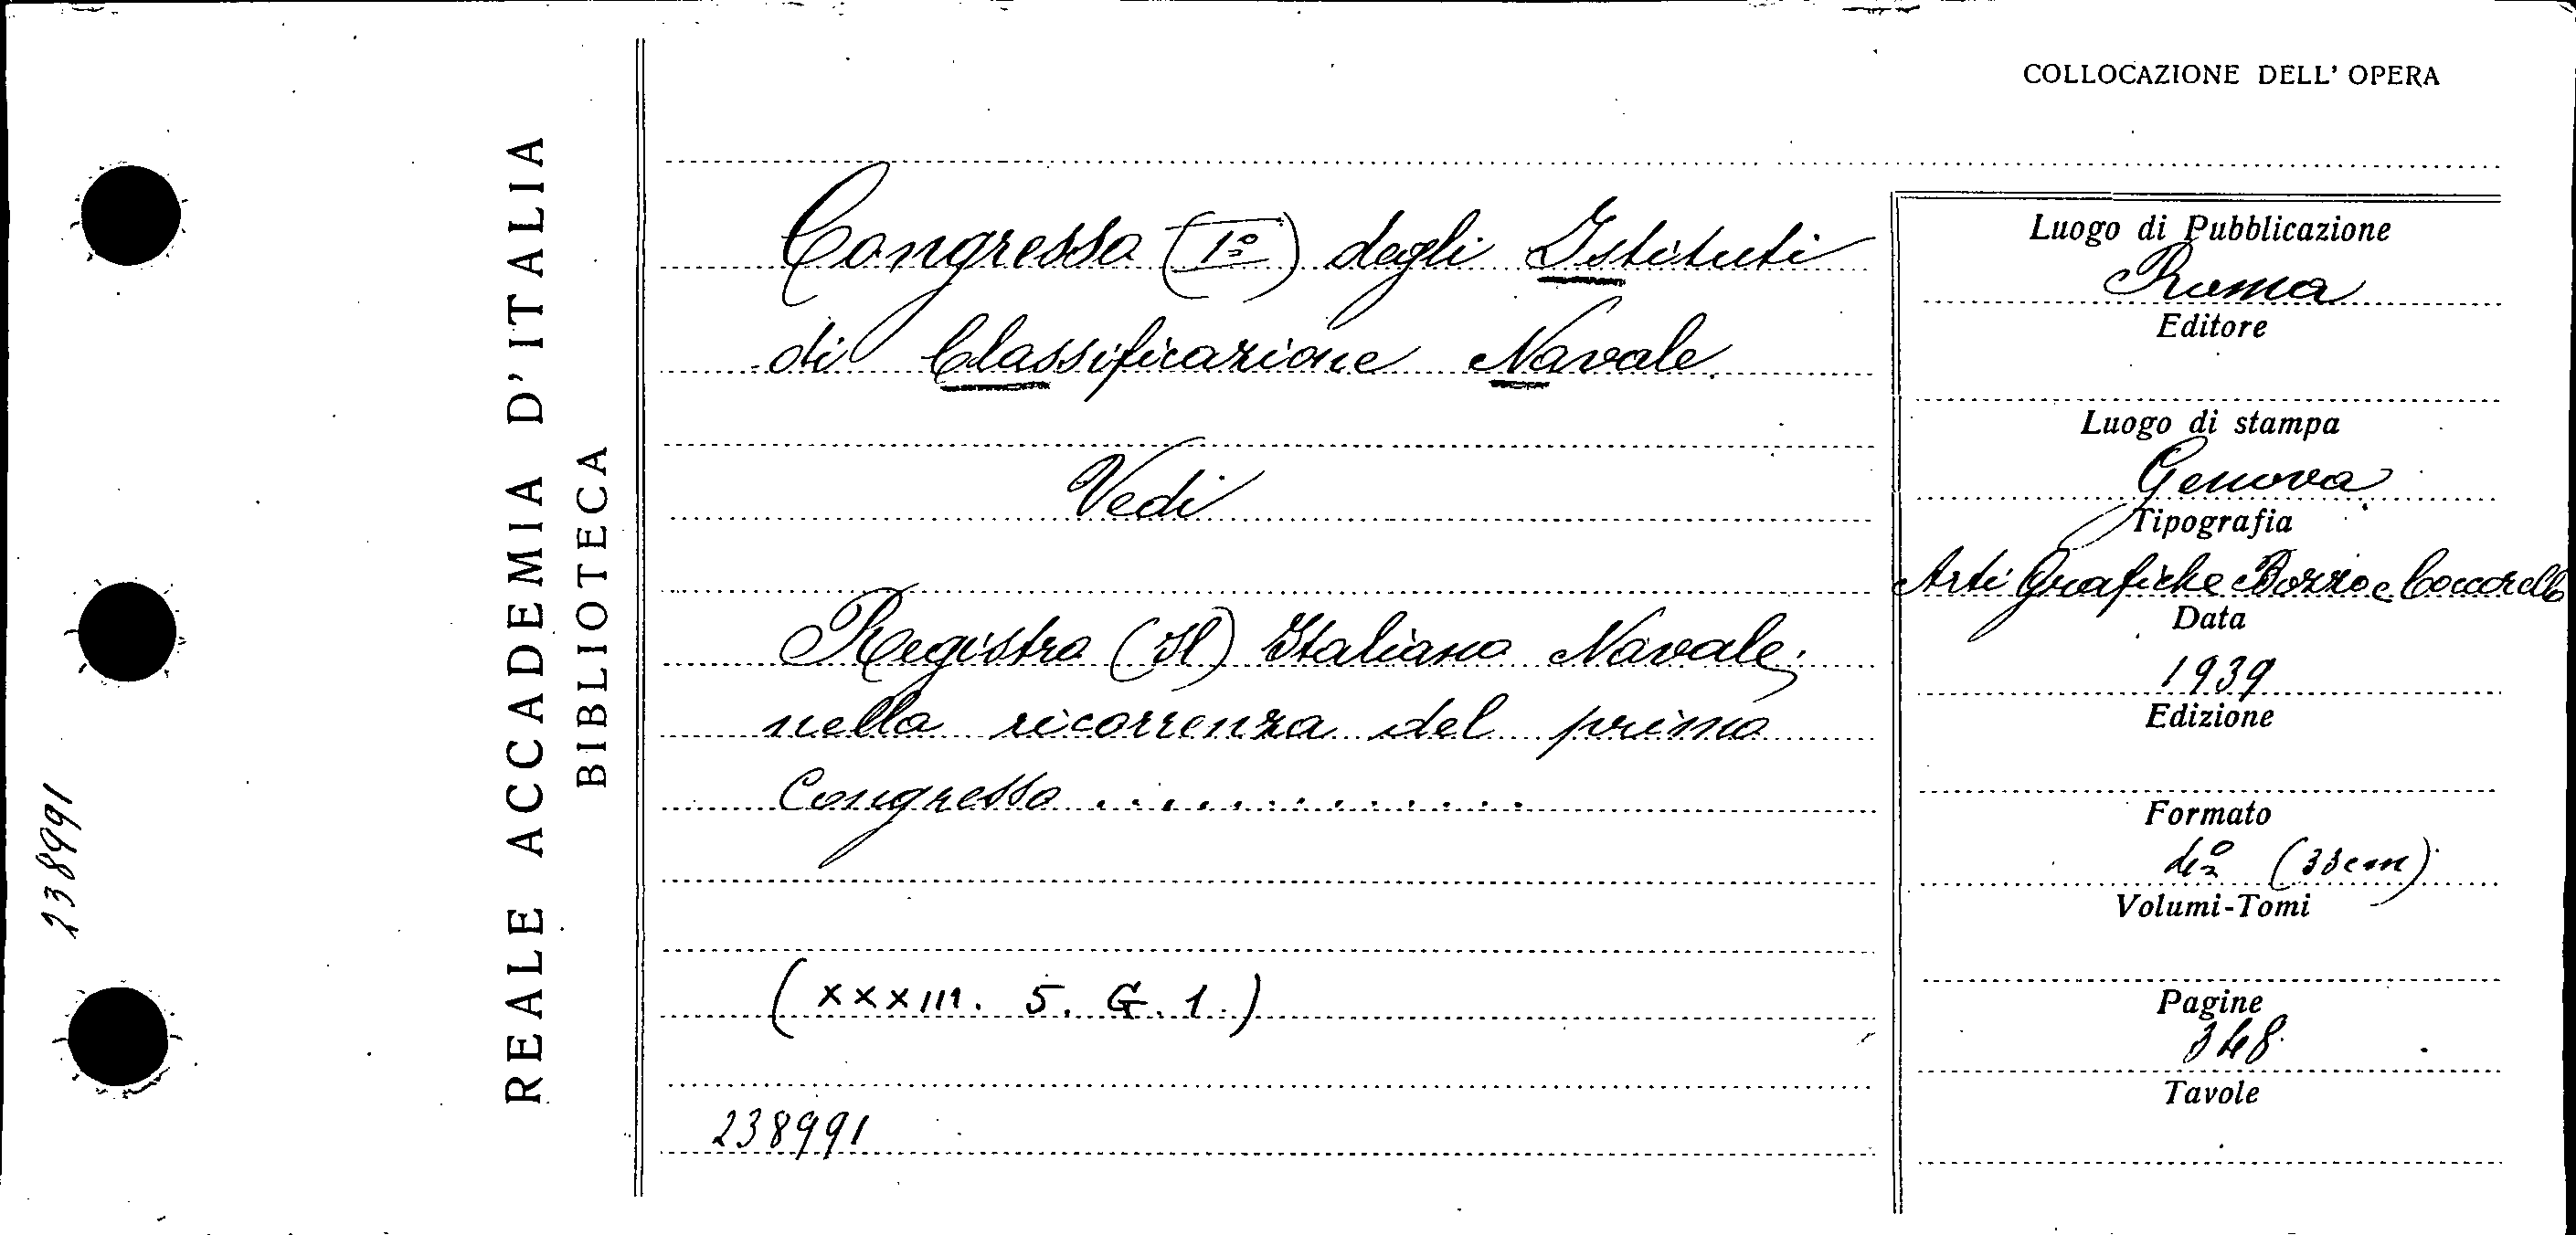 238991
REALE ACCADEMIA D'ITALIA
BIBLIOTECA
COLLOCAZIONE DELL' OPERA
Congresso (1º) degli Istituti
di Classificazione Navale.
Vedi
Registro (Il) Italiano Navale;
nella ricorrenza del primo
Congresso . . . . . . . . . . . . .
(XXXIII. 5. G. 1.)
238991
Luogo di Pubblicazione
Roma
Editore
Luogo di stampa
Genova
Tipografia
Arti Grafiche Bozzo e Coccarello
Data
1939
Edizione
Formato
4º (33cm)
Volumi-Tomi
Pagine
348
Tavole